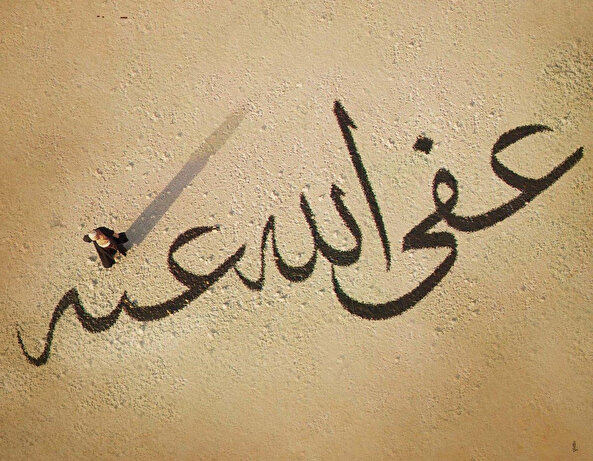 عفى الله عنه